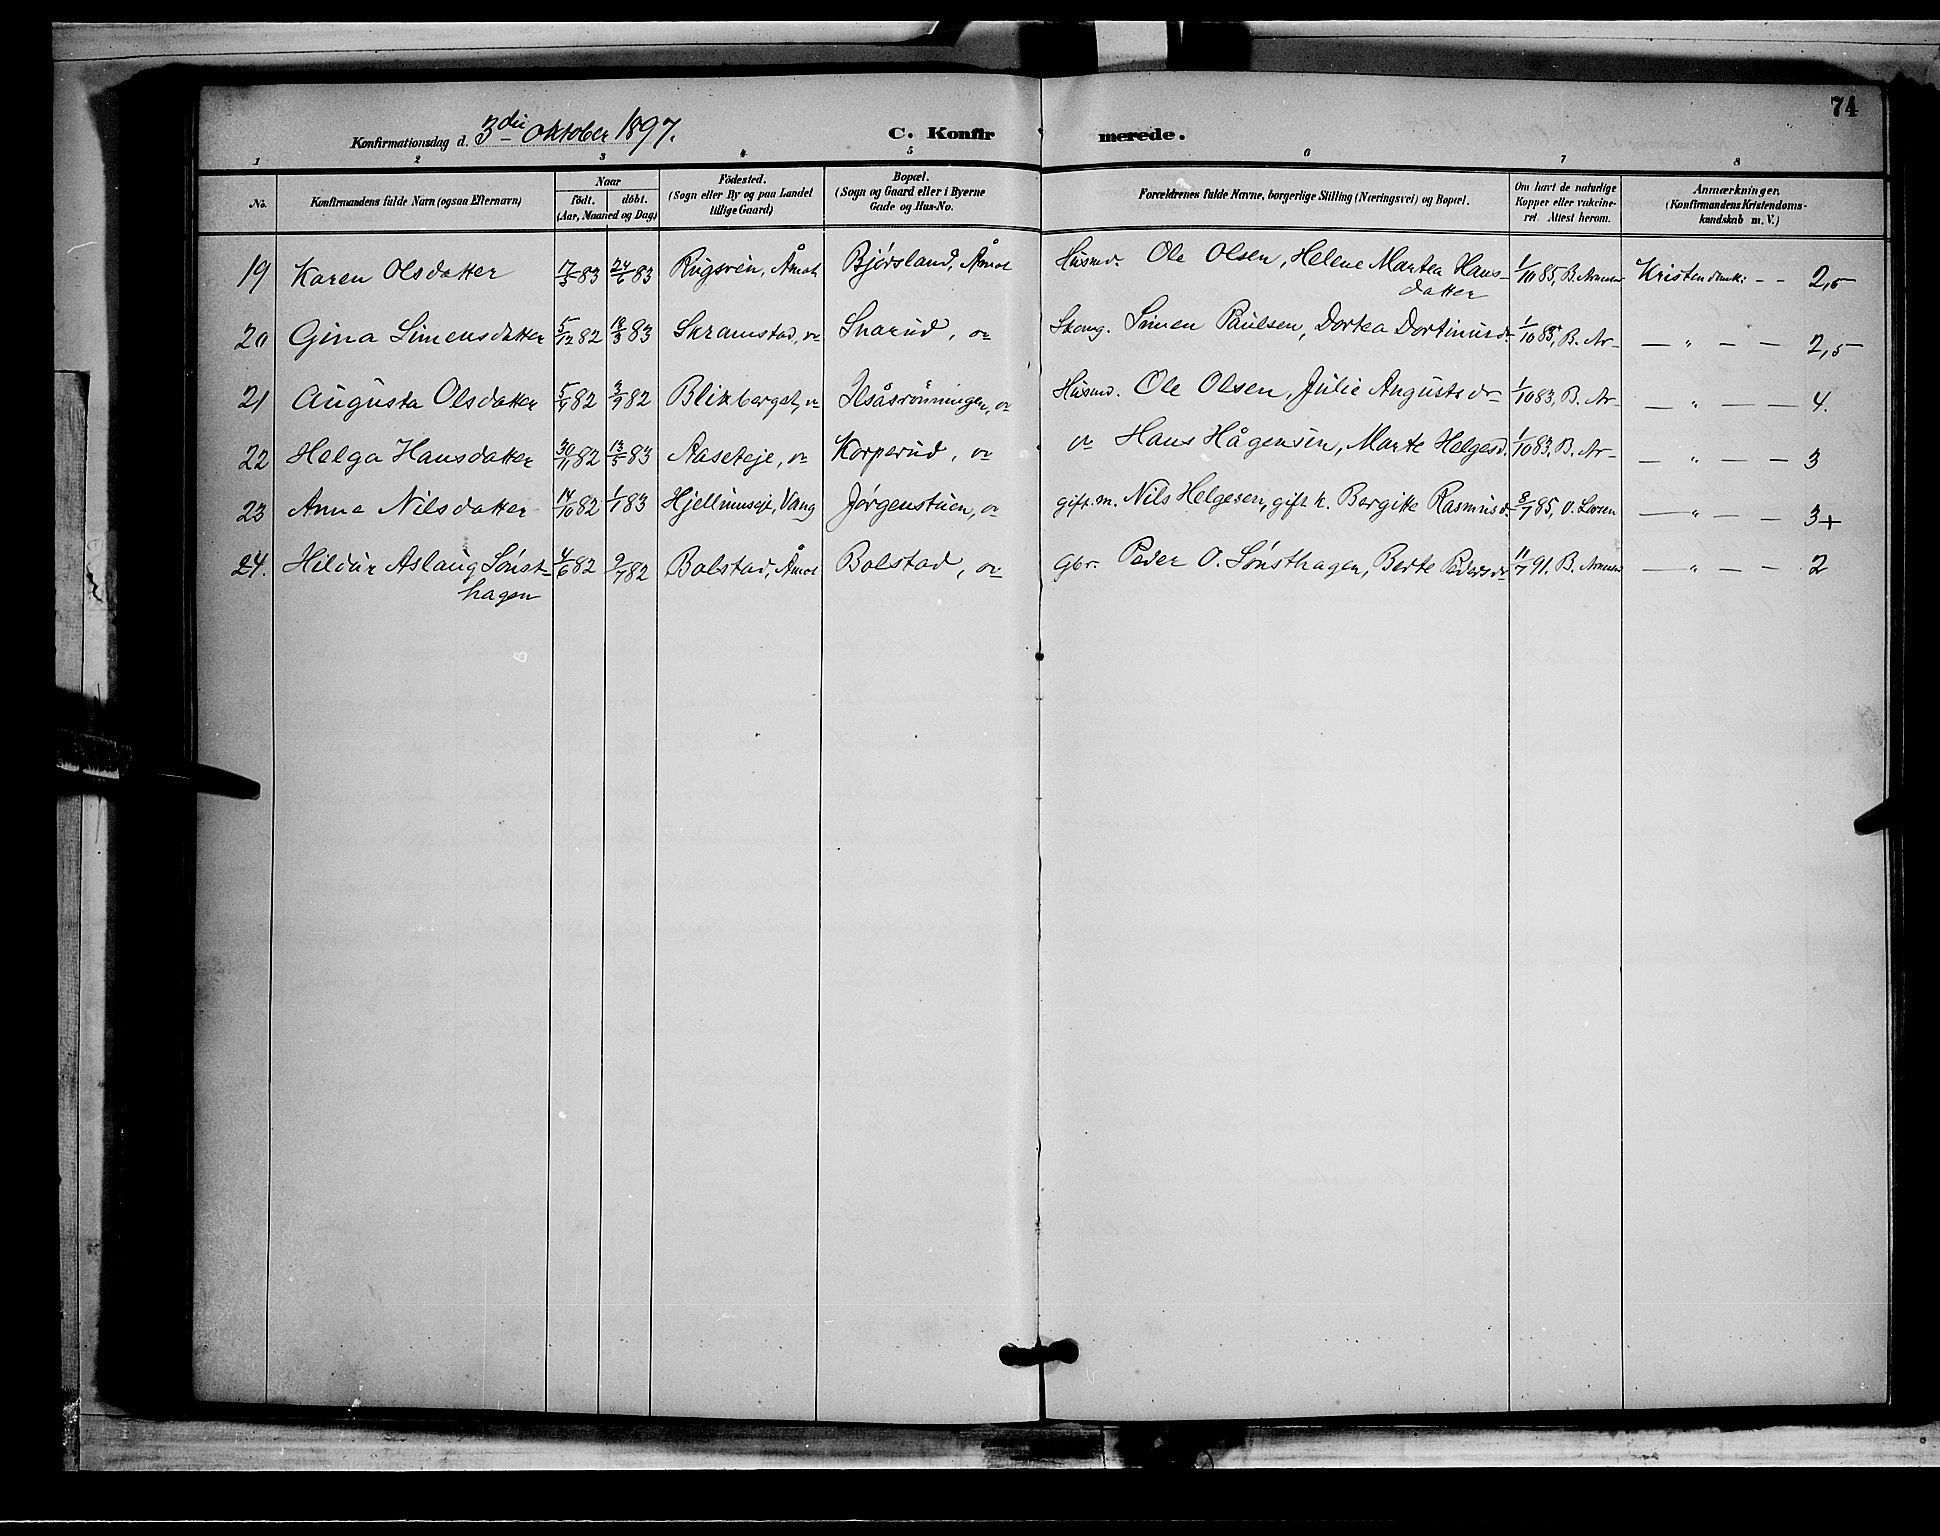 74
Konfirmationsdag d. 3die Oktober 1897.
C. Konfirmerede.
1 2 3 4 5 6 7 8
No. Konfirmandens fulde Navn (ogsaa Efternavn) Naar født. døbt. (Aar, Maaned og Dag) Födested. (Sogn eller By og paa Landet tillige Gaard) Bopæl. (Sogn og Gaard eller i Byerne Gade og Hus-No. Forældrenes fulde Navne, borgerlige Stilling (Næringsvei) og Bopæl. Om havt de naturlige Kopper eller vakcineret. Attest herom. Anmærkninger. (Konfirmandens Kristendomskundskab m. V.)
19 Karen Olsdatter 17/5 83 24/6 83 Rugsveen, Åmot Bjørsland, Åmot Husmd. Ole Olsen, Helene Martea Hansdatter 1/10 85, B. Arnesen Kristendmk: - - 2,5
20 Gina Simensdatter 5/12 82 18/3 83 Skramstad, „ Snarud, „ Simen Paulsen, Dortea Dortinusd. 1/10 85, B. Ar- — „ — — 2,5
21 Augusta Olsdatter 5/4 82 3/9 82 Blikberget, „ Ilsåsrønningen, „ Husmd. Ole Olsen, Julie Augustsdr 1/10 83, B. Ar- — „ — — 4.
22 Helga Hansdatter 30/11 82 13/5 83 Aaseteje, „ Korperud, „ „ Hans Hågensen, Marte Helgesd. 1/10 83, B. Ar- — „ — — 3
23 Anna Nilsdatter 14/10 82 1/1 83 Hjellumseje, Vang Jørgenstuen, „ gift m. Nils Helgesen, gift k. Bergitte Rasmusd. 8/7 85, O. Larsen — „ — — 3+
24. Hildur Aslaug Sønsthagen 4/6 82 9/7 82 Bolstad, Åmot Bolstad, „ Gbr. Peder O. Sønsthagen, Berte Pedersdr 11/7 91. B. Arnesen — „ — — 2